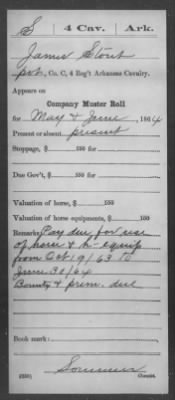 S 4 Cav. Ark.
James Stout
pvt, Co. C, 4 Reg't Arkansas Cavalry.
Appears on
Company Muster Roll
for May & June, 1864
Present or absent present
Stoppage, $ 100 for
Due Gov't, $ 100 for
Valuation of horse, $ 100
Valuation of horse equipments, $ 100
Remarks: Pay due for use
of horse & h- equip
from Oct 19/63 to
June 30/64
Bounty & prem. due
Book mark:
Sommer
(358) Copyist.